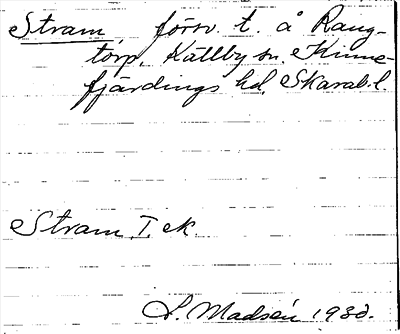 Stram, försv. t. å Rang-
torp, Källby sn. Kinne-
fjärdings hd, Skarab.l.
Stram, T. ek.
S. Madsén 1930.